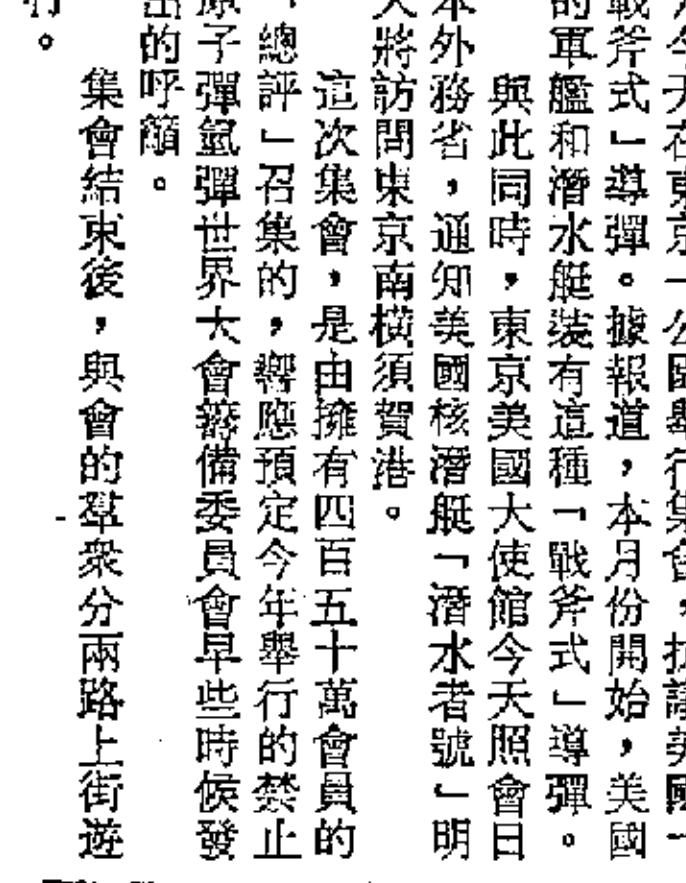 今天在東京一公園舉行集會，抗議美國一
戰斧式」導彈。據報道，本月份開始，美國
的軍艦和潛水艇裝有這種「戰斧式」導彈。
與此同時，東京美國大使館今天照會日
本外務省，通知美國核潛艇「潛水者號」明
天將訪問東京南橫須賀港。
這次集會，是由擁有四百五十萬會員的
「總評」召集的，響應預定今年舉行的禁止
原子彈氫彈世界大會籌備委員會早些時候發
出的呼籲。
集會結束後，與會的羣眾分兩路上街遊
行。